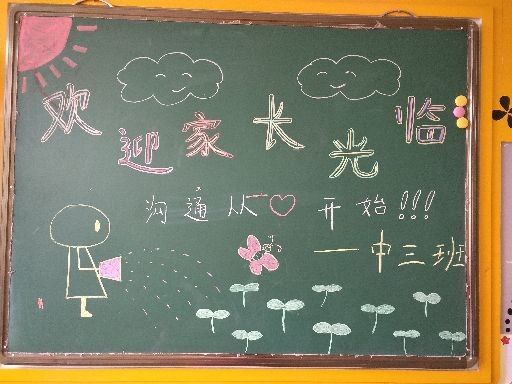 欢迎家长光临
沟通从♡开始!!!
一中三班